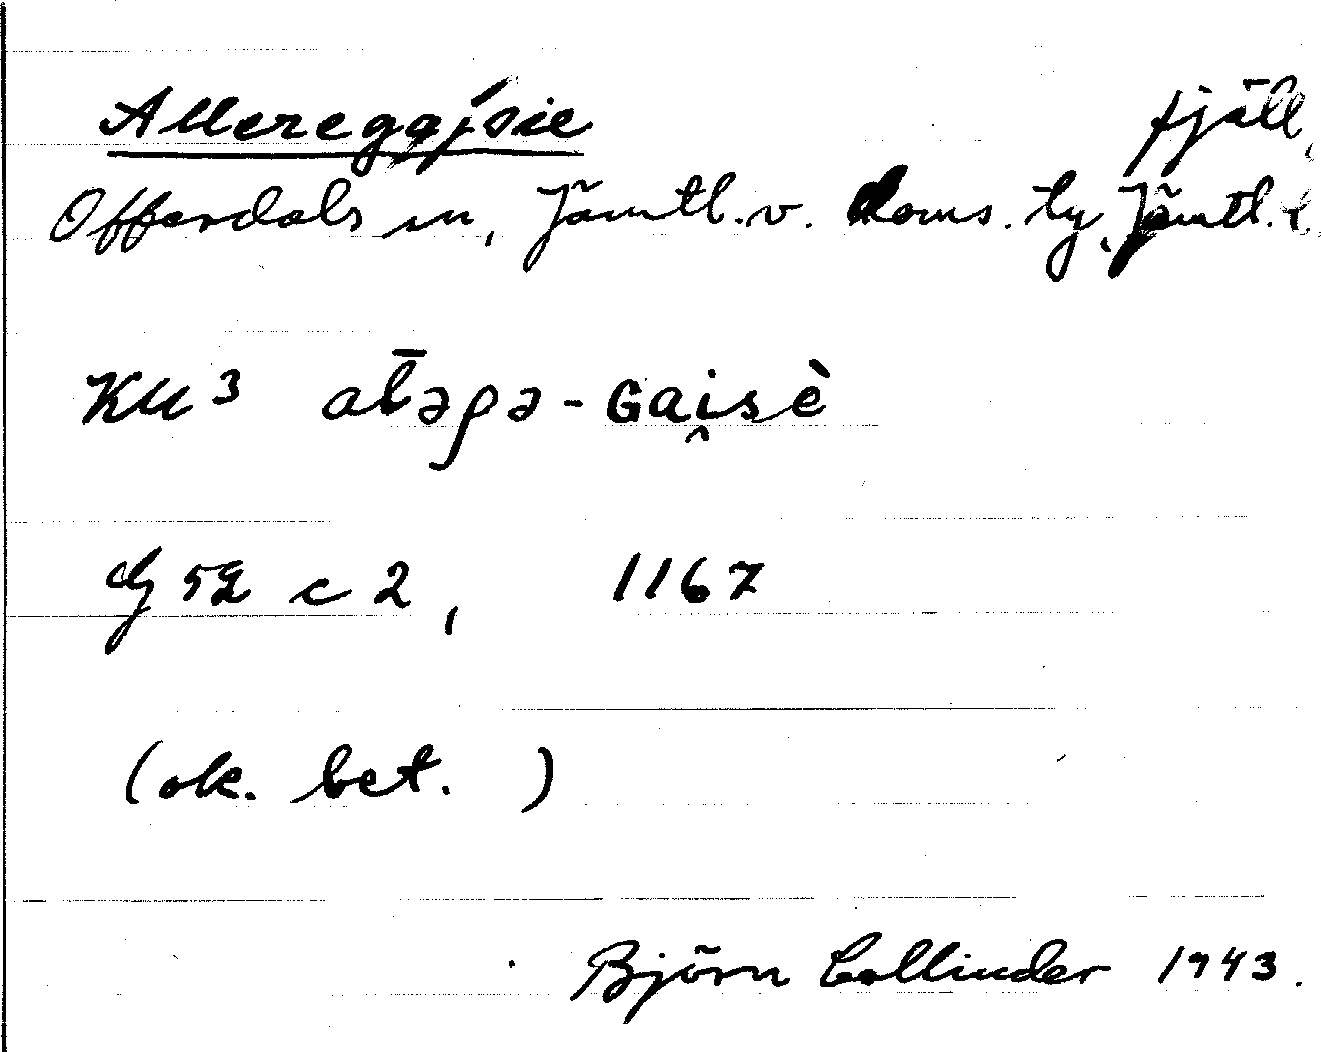 Alleregajsie fjäll,
Offerdals sn, Jämtl. v. doms. ty, Jämtl. l.
KU 3 al̄əρə-Gai̯sè
G 52 c 2, 1167
(ok. bet. )
Björn Collinder 1943.